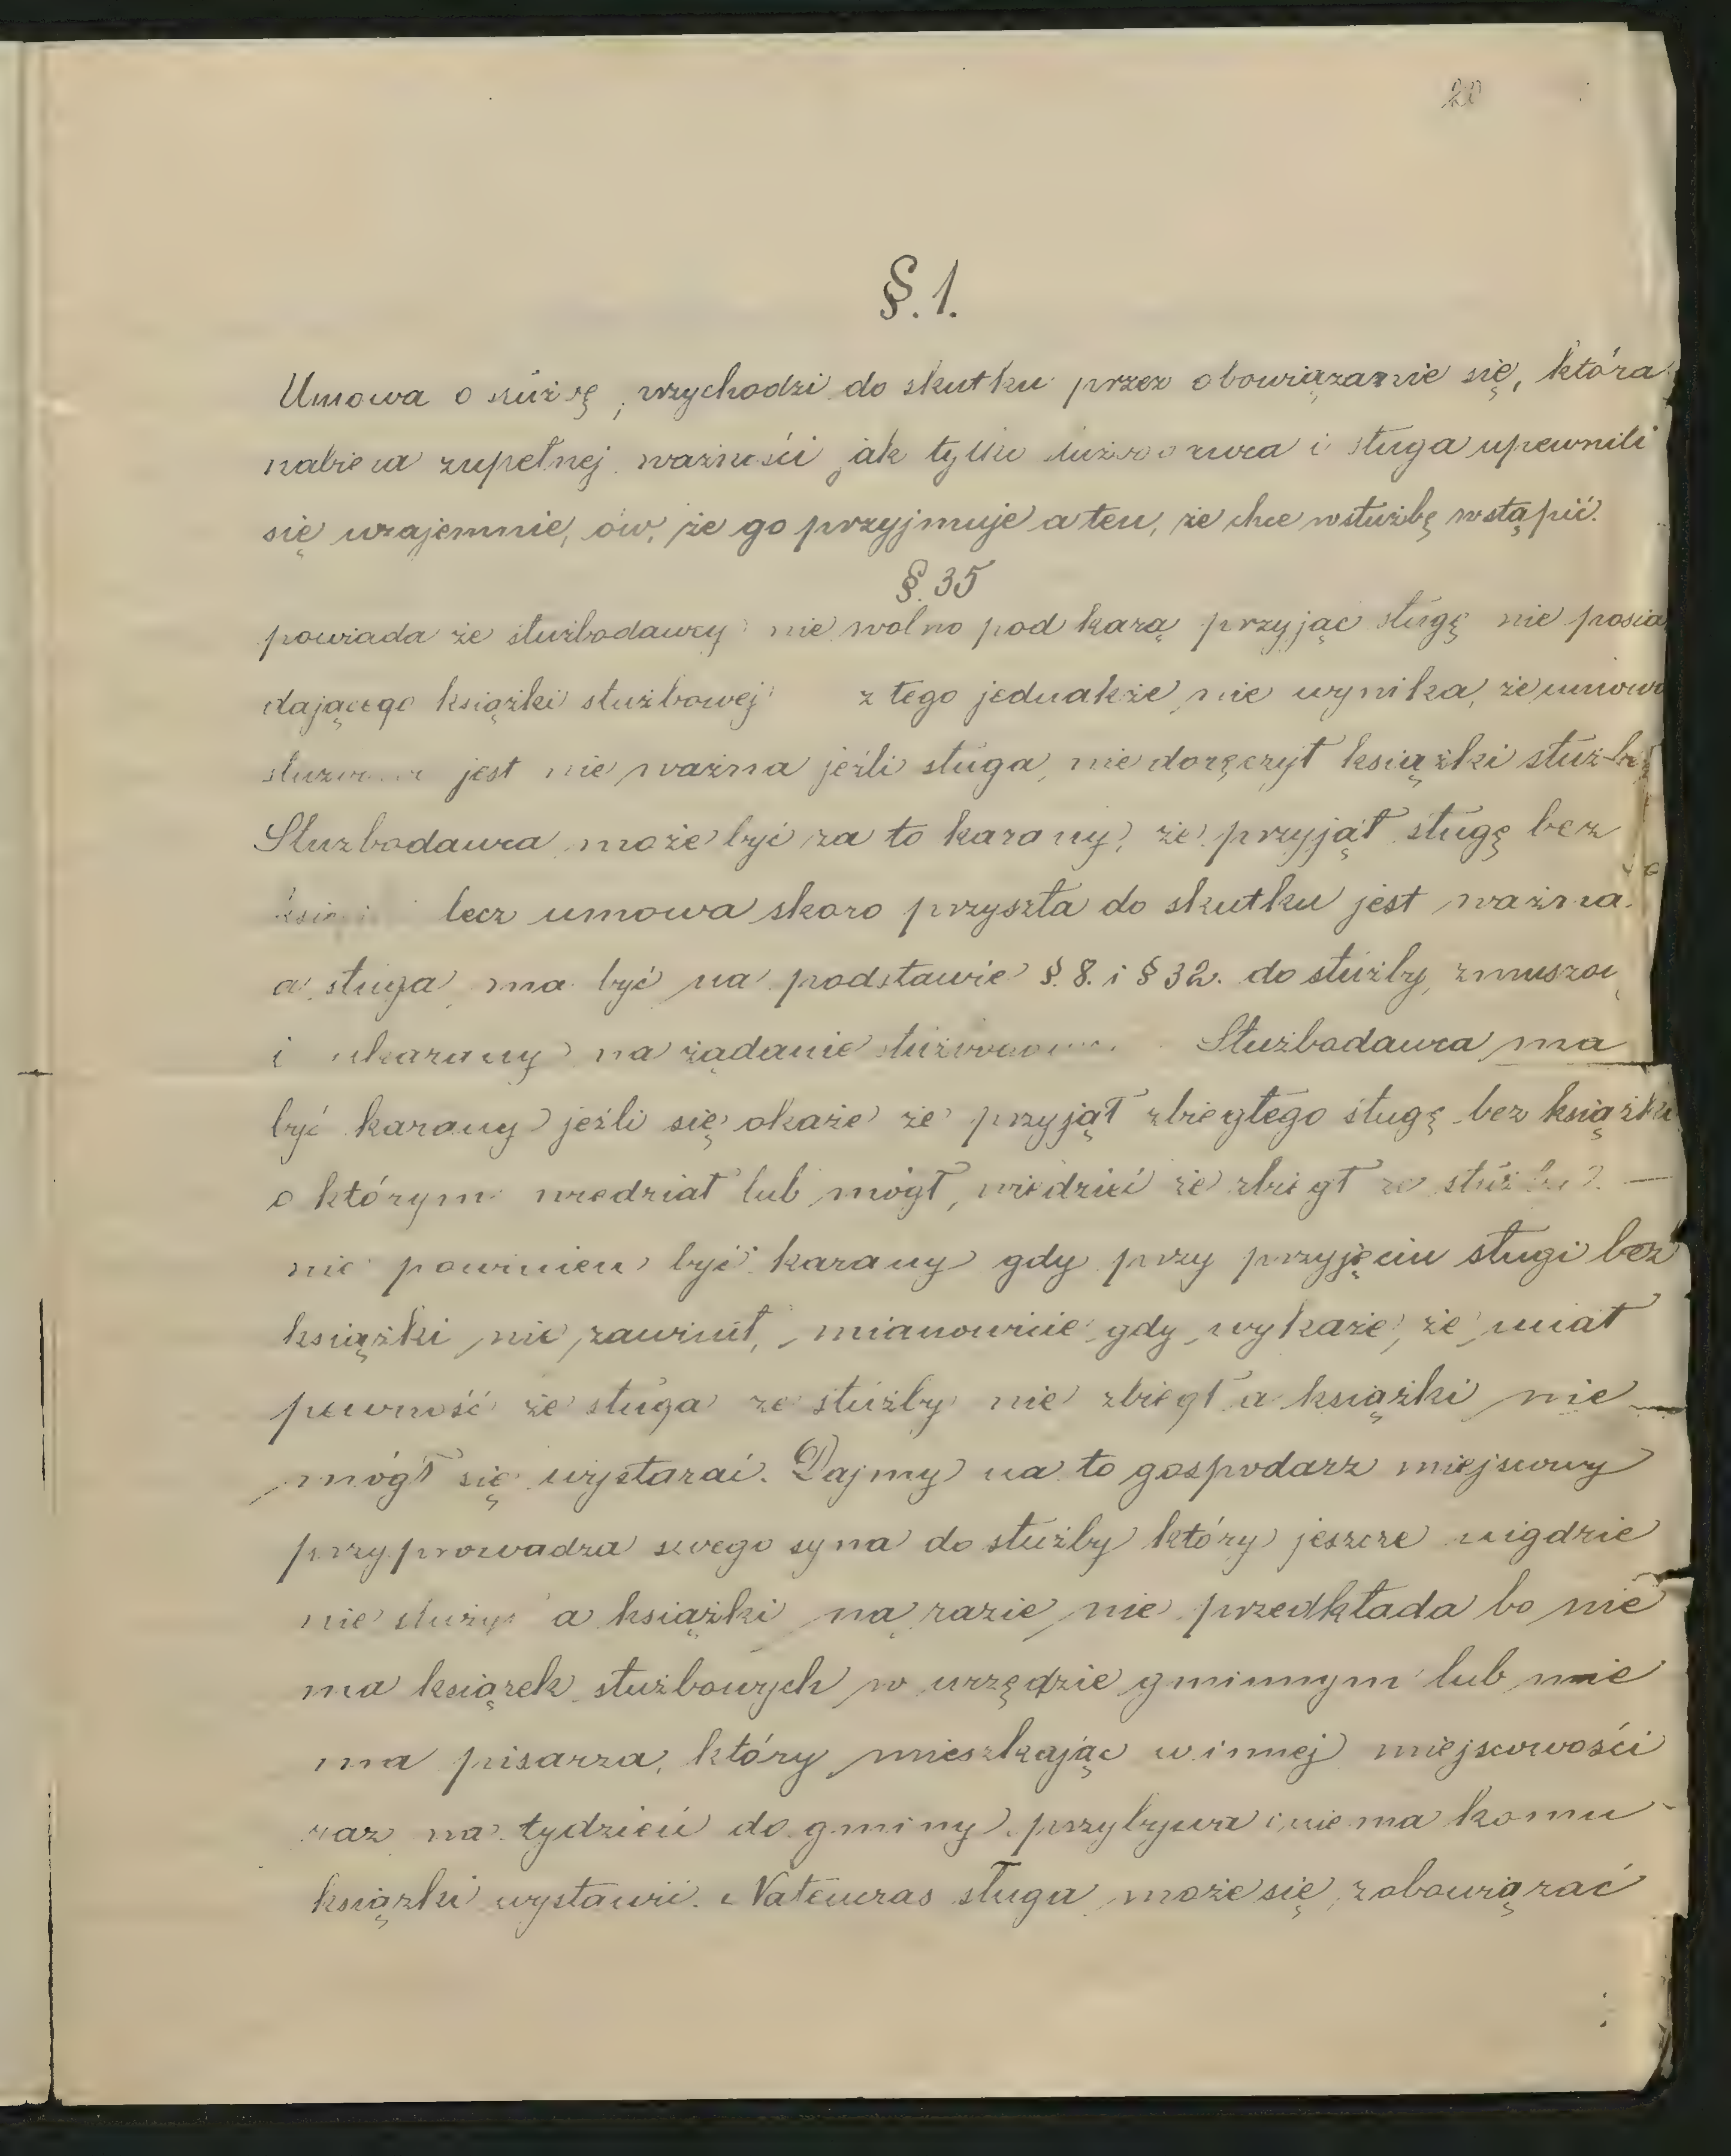 20
§. 1.
Umowa o służbę, przychodzi do skutku przez obowiązanie się, która
nabiera zupełnej ważności jak tylko służbodawca i sługa upewnili
się wzajemnie, ów, że go przyjmuje a ten, że chce w służbę wstąpić.
§. 35
powiada że służbodawcy nie wolno pod karą przyjąć sługę nie posia
dającego książki służbowej z tego jednakże nie wynika, że umowa
jest nie ważna jeźli sługa nie doręczył książki służb
Służbodawca może być za to karany, że przyjął sługę bez
lecz umowa skoro przyszła do skutku jest ważna.
a sługa ma być na podstawie §. 8. i § 32. do służby, zmuszon
i ukarany na żądanie Służbodawca ma
być karany jeźli się okaże że przyjął zbiegłego sługę bez książki
o którym wiedział lub mógł, wiedzieć że zbiegł ze służby. —
nie powinien być karany gdy przy przyjęciu sługi bez
książki nie zawinił, mianowicie gdy wykaże, że miał
pewność że sługa ze służby nie zbiegł a książki nie
mógł się wystarać. Dajmy na to gospodarz miejscowy
przyprowadza swego syna do służby który jeszcze nigdzie
nie służył a książki na razie nie przedkłada bo nie
ma książek służbowych w urzędzie gminnym lub nie
ma pisarza, który mieszkając w innej miejscowości
raz na tydzień do gminy przybywa i nie ma komu
książki wystawić. Natenczas sługa może się zobowiązać